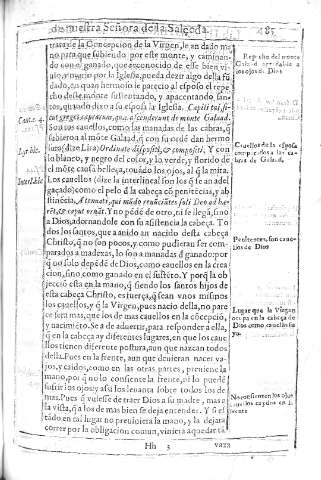 de nuestra Señora de la Salceda. 485
tratar de la Concepcion de la Virgen, le an dado ma
no para que subiendo por este monte, y caminan
do como el ganado, que a conocido de esse bien
y por la Iglesia, pueda dezir algo della
dado, en quan hermoso le parecio al esposo el repe
cho desse monte sustentado, y apacentando san
tos, quando dixo a su esposa la Iglesia. Capilli tui si
cut greges caprarum, quæ ascenderunt de monte Galaad.
Son tus cauellos, como las manadas de las cabras, q̃
subieron al mõte Galaad, q̃ con su ordẽ dan hermo
sura (dize Lira) Ordinate dispositi, & compositi. Y con
lo blanco, y negro del color, y lo verde, y florido de
el mõte causa belleza, y roua los ojos, al q̃ la mira.
Los cauellos (dize la interlineal son los q̃ se an adel
gaçado) como el pelo d la cabeça cõ penitẽcias, y ab
stinẽcia, qui mũdo renũciãtes soli Deo ad hæ
rẽt, & caput ornãt. Y no pẽde de otro, ni se llega, sino
a Dios, adornandole con su assistencia la cabeça. To
dos los santos, que a auido an nacido desta cabeça
Christo, q̃ no son pocos, y como pudieran ser com
parados a madexas, lo son a manadas de ganado: por
que no solo depẽdẽ de Dios, como cauellos en la crea
cion, sino, como ganado en el sustẽto. Y porq̃ la ob
jeciõ esta en la mano, q̃ siendo los santos hijos de
esta cabeça Christo, es fuerça, q̃ sean vnos mismos
los cauellos, y q̃ la Virgen, pues nacio della, no pare
ce sera mas, que los de mas cauellos en la cõcepciõ,
y nacimiẽto. Se a de aduertir, para responder a ella,
q̃ en la cabeça ay diferentes lugares, en que los caue
llos tienen diferente postura, aun que nazcan todos
della. Pues en la frente, aun que deuieran nacer va
jos, y caidos, como en las otras partes, preniene la
mano, por q̃ no lo consiente la frente, ni lo puedẽ
sufrir los ojos, y assi los leuanta sobre todos los de
mas. Pues q̃ viuesse de traer Dios a su madre, mas a
la vista, q̃ a los de mas bien se deja entender. Y si el
tado en tal lugar no preuiniera la mano, y la dejara
correr por la obligacion comun, viniera a quedar tã
Hh 3 vaxa
Cant. 4.
Lyr. ibi.
Interl. ibi.
Repecho del monte
Galaad agradable a
los ojos de Dios
Cauellos de la esposa
comparados a las ca
bras de Galaad.
Penitentes, son caue
llos de Dios
Lugar que la Virgen
ocupa en la cabeça de
Dios como cauellos su
yo.
No consienten los ojos
cauellos caydos en la
frente